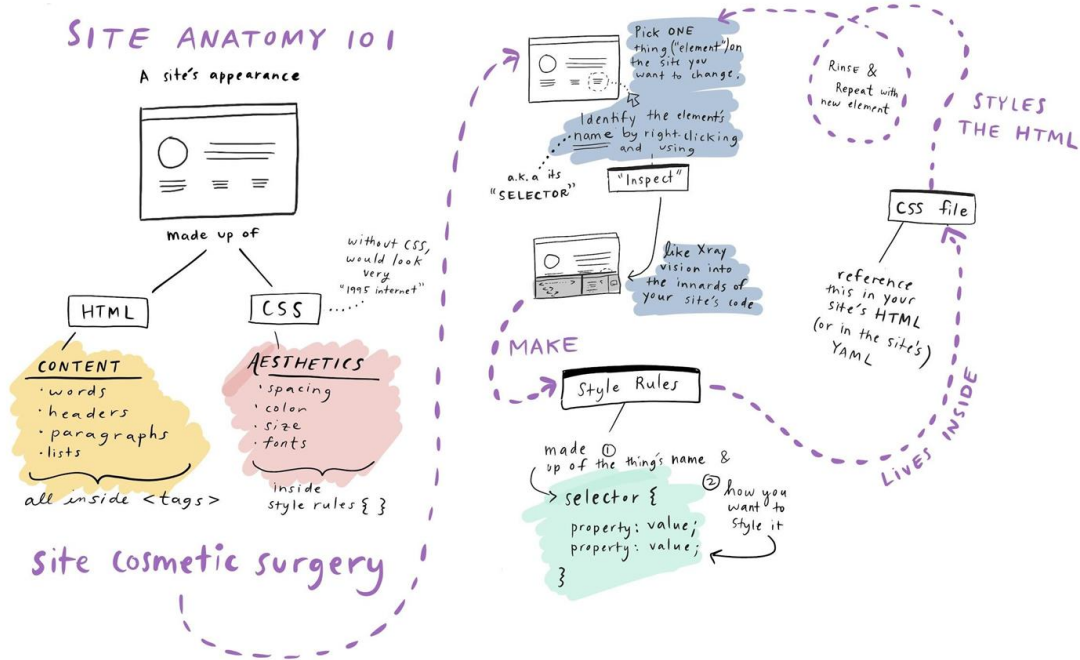 SITE ANATOMY 101
A site's appearance
made up of
HTML
CSS
without CSS,
would look
very
"1995 internet"
CONTENT
· words
· headers
· paragraphs
· lists
all inside <tags>
AESTHETICS
· spacing
· color
· size
· fonts
inside
style rules { }
site cosmetic surgery
Pick ONE
thing ("element") on
the site you
want to change.
Identify the element's
name by right-clicking
and using
a.k.a its
"SELECTOR"
"Inspect"
like Xray
vision into
the innards of
your site's code
MAKE
Style Rules
made ①
up of the thing's name &
selector {
property: value;
property: value;
}
② how you
want to
style it
LIVES INSIDE
CSS file
reference
this in your
site's HTML
(or in the site's)
YAML
STYLES
THE HTML
Rinse &
Repeat with
new element